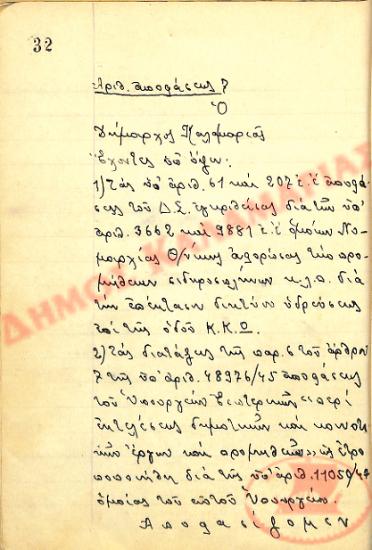 32
Ἀριθ. ἀποφάσεως 7
Ὁ
Δήμαρχος Καλαμαριᾶς
Ἔχοντες ὑπ' ὄψιν:
1) Τὰς ὑπ' ἀριθ. 61 καὶ 207 ἐ.ἔ ἀποφά-
σεις τοῦ Δ.Σ. ἐγκριθείσας διὰ τῶν ὑπ'
ἀριθ. 3662 καὶ 9881 ἐ.ἔ ὁμοίων Νο-
μαρχίας Θ/νίκης ἀφορώσας τὴν προ-
μήθειαν σιδηροσωλήνων κ.λ.π. διὰ
τὴν ἐπέκτασιν δικτύου ὑδρεύσεως
ἐπὶ τῆς ὁδοῦ Κ.Κ.Ω.
2) Τὰς διατάξεις τῆς παρ. 6 τοῦ ἄρθρου
7 τῆς ὑπ' ἀριθ. 48976/45 ἀποφάσεως
τοῦ Ὑπουργείου Ἐσωτερικῶν «περὶ
ἐκτελέσεως δημοτικῶν καὶ κοινοτι-
κῶν ἔργων καὶ προμηθειῶν» ὡς ἐτρο-
ποποιήθη διὰ τῆς ὑπ' ἀριθ. 11050/47
ὁμοίας τοῦ αὐτοῦ Ὑπουργείου.
Ἀποφασίζομεν
ΔΗΜΟΥ ΚΑΛΑΜΑΡΙΑΣ